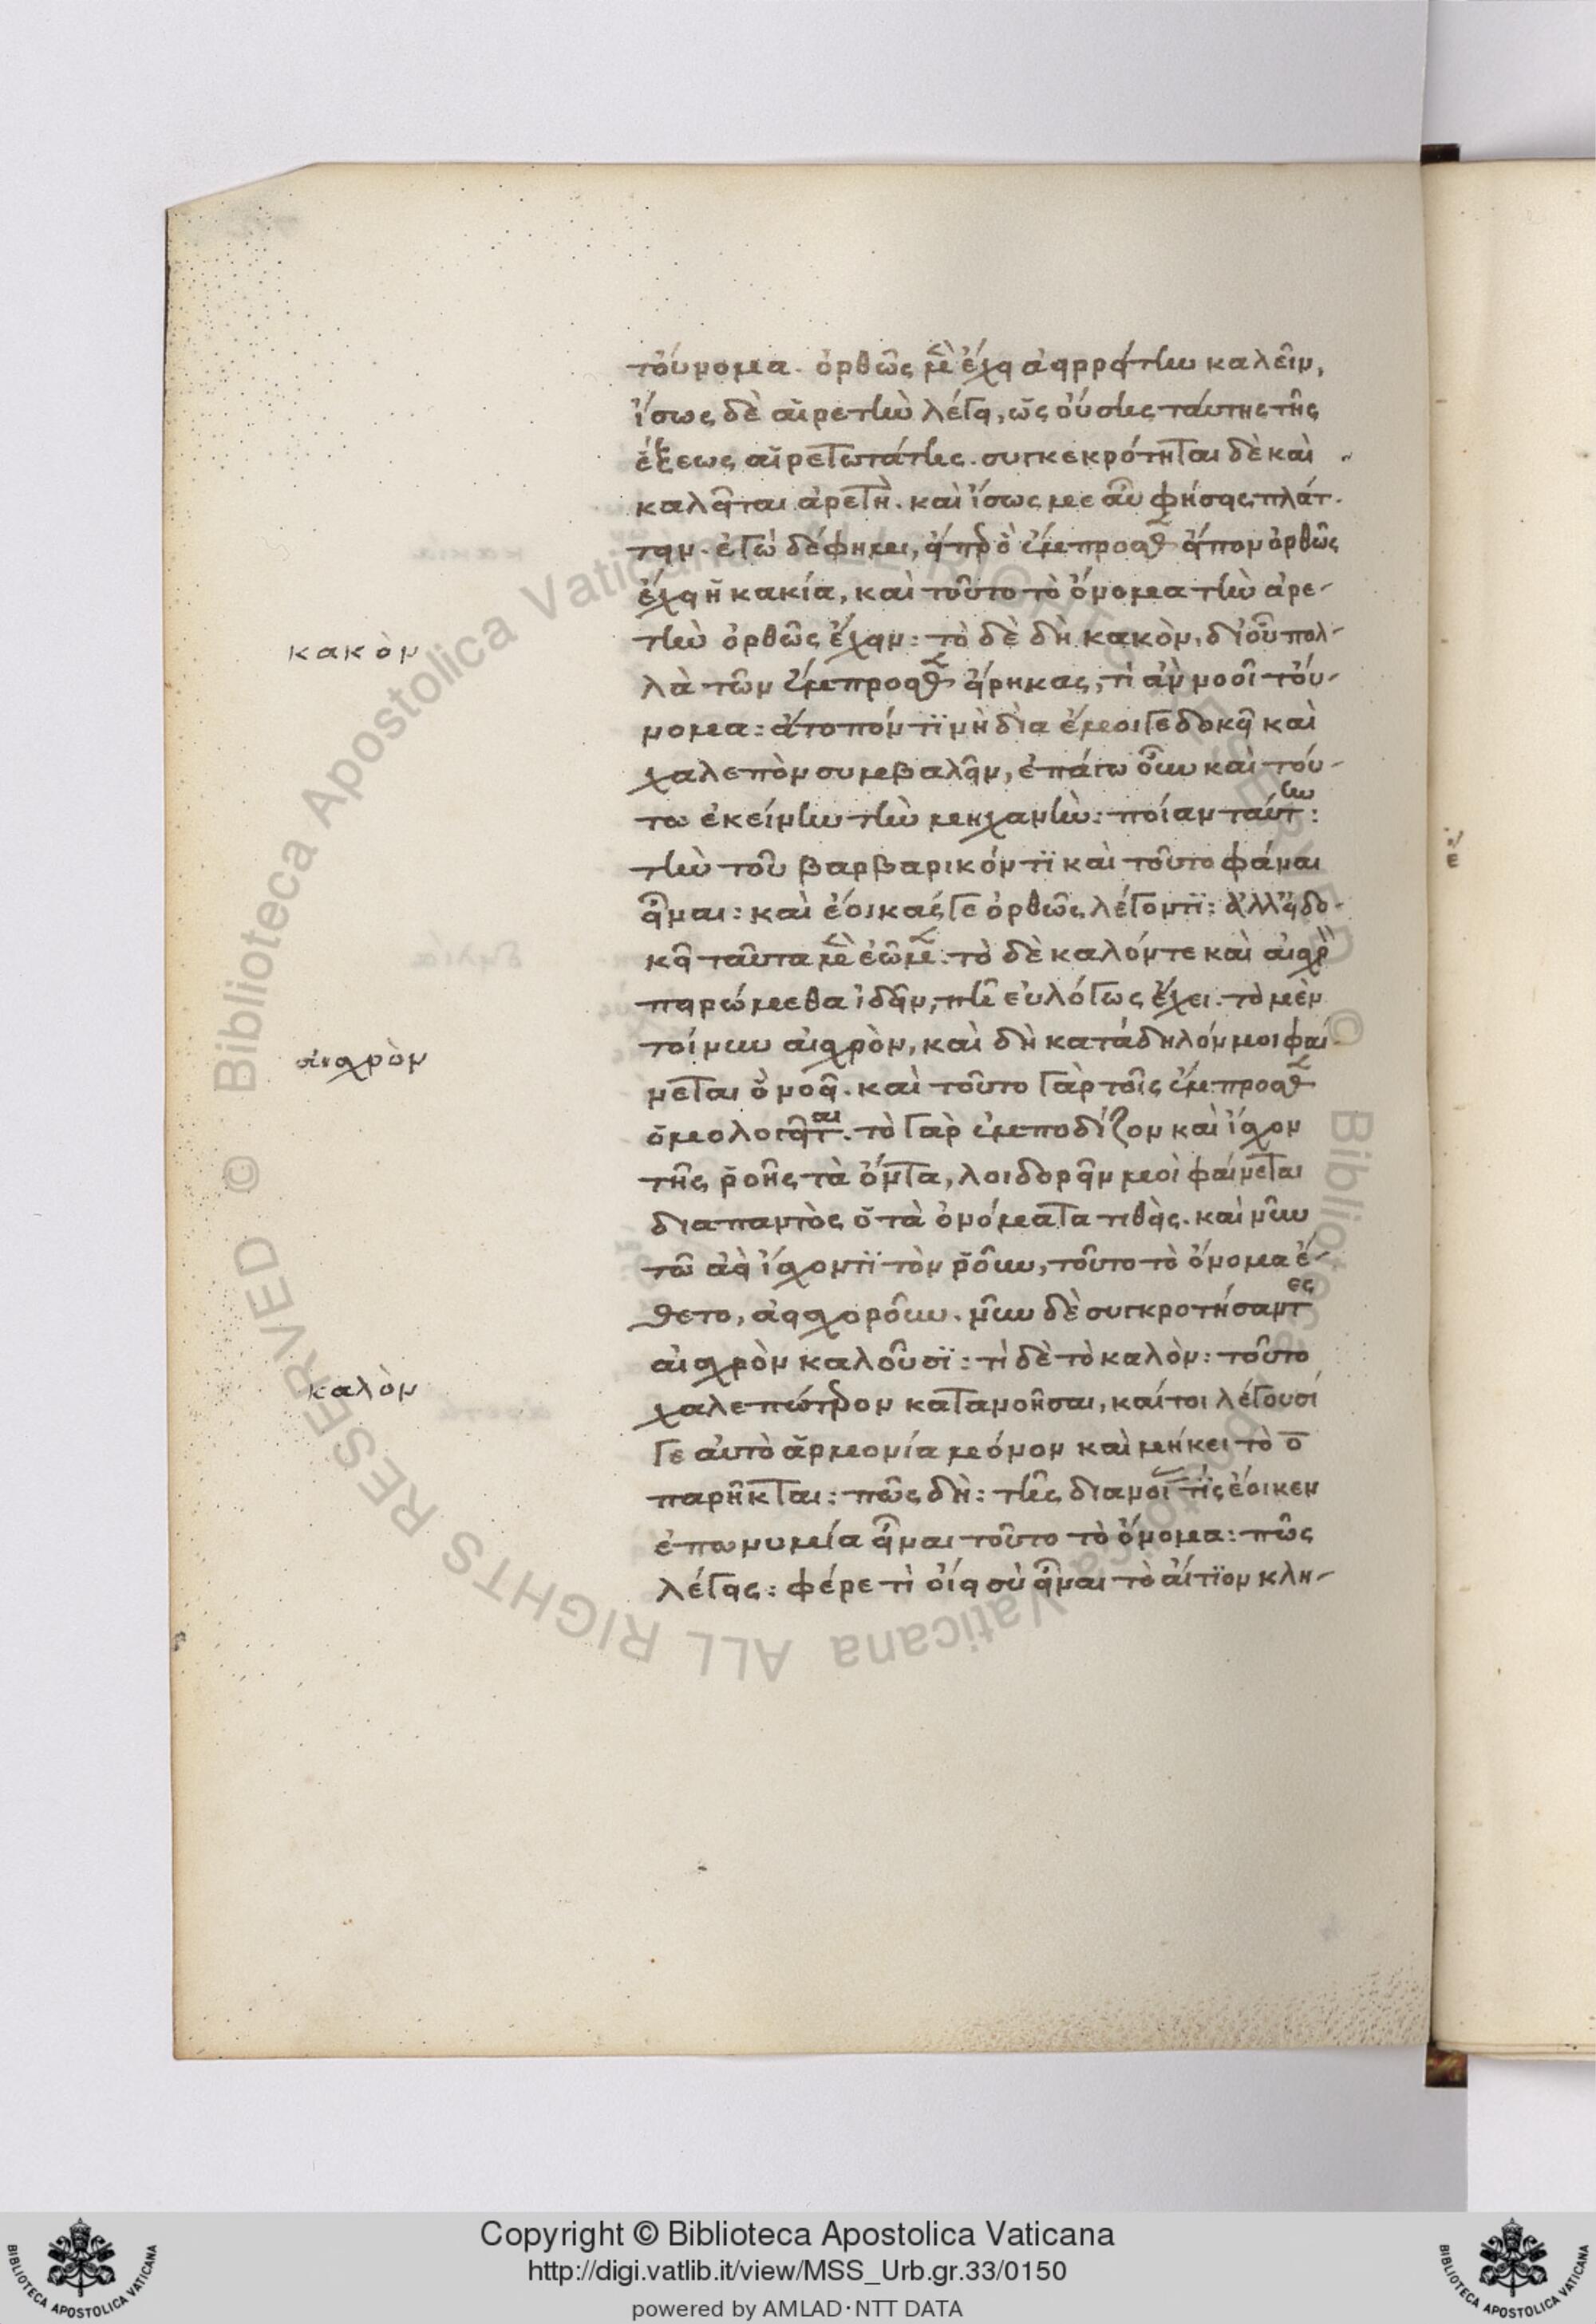 τούνομα. ὀρθῶς μὲν ἔχει ἀειρείτην καλεῖν,
ἴσως δὲ αἱρετὴν λέγει, ὡς οὔσης ταύτης τῆς
ἕξεως αἱρετωτάτης. συγκεκρότηται δὲ καὶ
καλεῖται ἀρετή. καὶ ἴσως με αὖ φήσεις πλάτ-
τειν. ἐγὼ δέ φημι, εἴπερ ὃ ἔμπροσθεν εἶπον ὀρθῶς
ἔχει ἡ κακία, καὶ τοῦτο τὸ ὄνομα τὴν ἀρε-
τὴν ὀρθῶς ἔχειν: τὸ δὲ δὴ κακὸν, δι' οὗ πολ-
κακὸν
λὰ τῶν ἔμπροσθεν εἴρηκας, τί ἂν νοοῖ τού-
νομα: ἄτοπόν τι νὴ δία ἐμοί γε δοκεῖ καὶ
χαλεπὸν συμβαλεῖν, ἐπάγω οὖν καὶ τού-
τω ἐκείνην τὴν μηχανήν: ποίαν ταύτην:
τὴν τοῦ βαρβαρικόν τι καὶ τοῦτο φάναι
εἶναι: καὶ ἔοικάς γε ὀρθῶς λέγοντι: ἀλλ' εἰ δο-
κεῖ ταῦτα μὲν ἐῶμεν: τὸ δὲ καλόν τε καὶ αἰσχρὸν
πειρώμεθα ἰδεῖν, πῆ εὐλόγως ἔχει: τὸ μὲν
τοίνυν αἰσχρὸν, καὶ δὴ κατάδηλόν μοι φαί-
αἰσχρὸν
νεται ὃ νοεῖ. καὶ τοῦτο γὰρ τοῖς ἔμπροσθεν
ὁμολογεῖται. τὸ γὰρ ἐμποδίζον καὶ ἴσχον
τῆς ῥοῆς τὰ ὄντα, λοιδορεῖν μοὶ φαίνεται
διαπαντὸς ὁ τὰ ὀνόματα τιθεὶς. καὶ νῦν
τῶ ἀεὶ ἴσχοντι τὸν ῥοῦν, τοῦτο τὸ ὄνομα ἔ-
θετο, ἀεισχοροῦν. νῦν δὲ συγκροτήσαντες
αἰσχρὸν καλοῦσι: τί δὲ τὸ καλὸν: τοῦτο
καλὸν
χαλεπώτερον κατανοῆσαι, καίτοι λέγουσί
γε αὐτὸ ἁρμονία μόνον καὶ μήκει τὸ ο
παρῆκται: πῶς δή: τῆς διανοίας τίς ἔοικεν
ἐπωνυμία εἶναι τοῦτο τὸ ὄνομα: πῶς
λέγεις: φέρε τί οἴει σὺ εἶναι τὸ αἴτιον κλη-
Copyright © Biblioteca Apostolica Vaticana
http://digi.vatlib.it/view/MSS_Urb.gr.33/0150
powered by AMLAD·NTT DATA
© Biblioteca Apostolica Vaticana ALL RIGHTS RESERVED
© Biblioteca Apostolica Vaticana ALL RIGHTS RESERVED
BIBLIOTECA APOSTOLICA VATICANA
BIBLIOTECA APOSTOLICA VATICANA